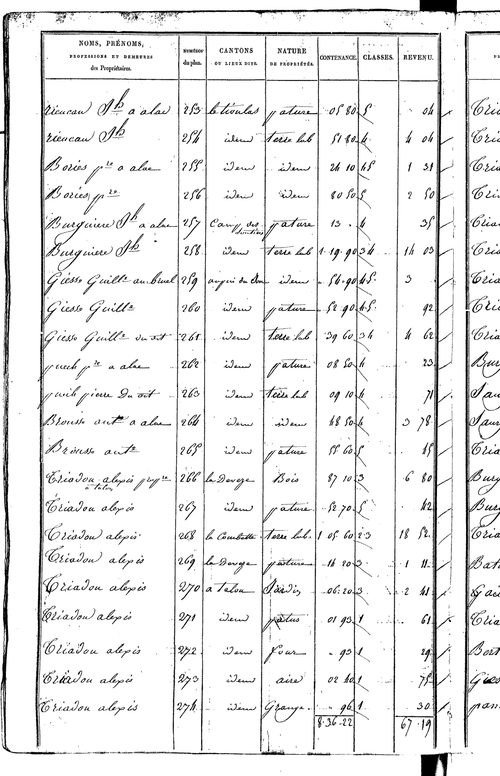 NOMS, PRÉNOMS, PROFESSIONS ET DEMEURES des Propriétaires. NUMÉROS du plan. CANTONS OU LIEUX DITS. NATURE DE PROPRIÉTÉS. CONTENANCE. CLASSES. REVENU.
rieucau Jh a alac 253 pature 05 80 5 04
rieucau Jh 254 idem terre lab 51 80 4 4 04
Bories pre a alac 255 idem idem 24 10 45 1 31
Bories pre 256 idem idem 80 50 5 2 50
Burguiere Jh a alac 257 Camp des pature 13 4 35
Burguiere Jh 258 idem terre lab 1 19 90 34 14 03
Giesse Guille 259 idem 54 90 45 3
Giesse Guille 260 idem pature 52 90 45 92
Giesse Guille du dit 261 idem terre lab 39 60 34 4 62
puech pre a alac 262 idem pature 08 50 4 23
puech pierre du dit 263 idem terre lab 09 10 4 71
Brousse ante a alac 264 idem idem 48 50 4 3 78
Brousse ante 265 idem pature 55 60 5 45
Triadou alexis propre a talou 266 la Deveze Bois 87 10 3 6 80
Triadou alexis 267 idem pature 52 70 5 42
Triadou alexis 268 la Combette terre lab 1 05 60 23 18 52
Triadou alexis 269 la Deveze pature 14 20 3 1 11
Triadou alexis 270 a talou Jardin 06 20 3 2 41
Triadou alexis 271 idem patus 01 93 1 61
Triadou alexis 272 idem four 93 1 29
Triadou alexis 273 idem aire 02 40 1 75
Triadou alexis 274 idem Grange 96 1 30
8 36 22 67 19